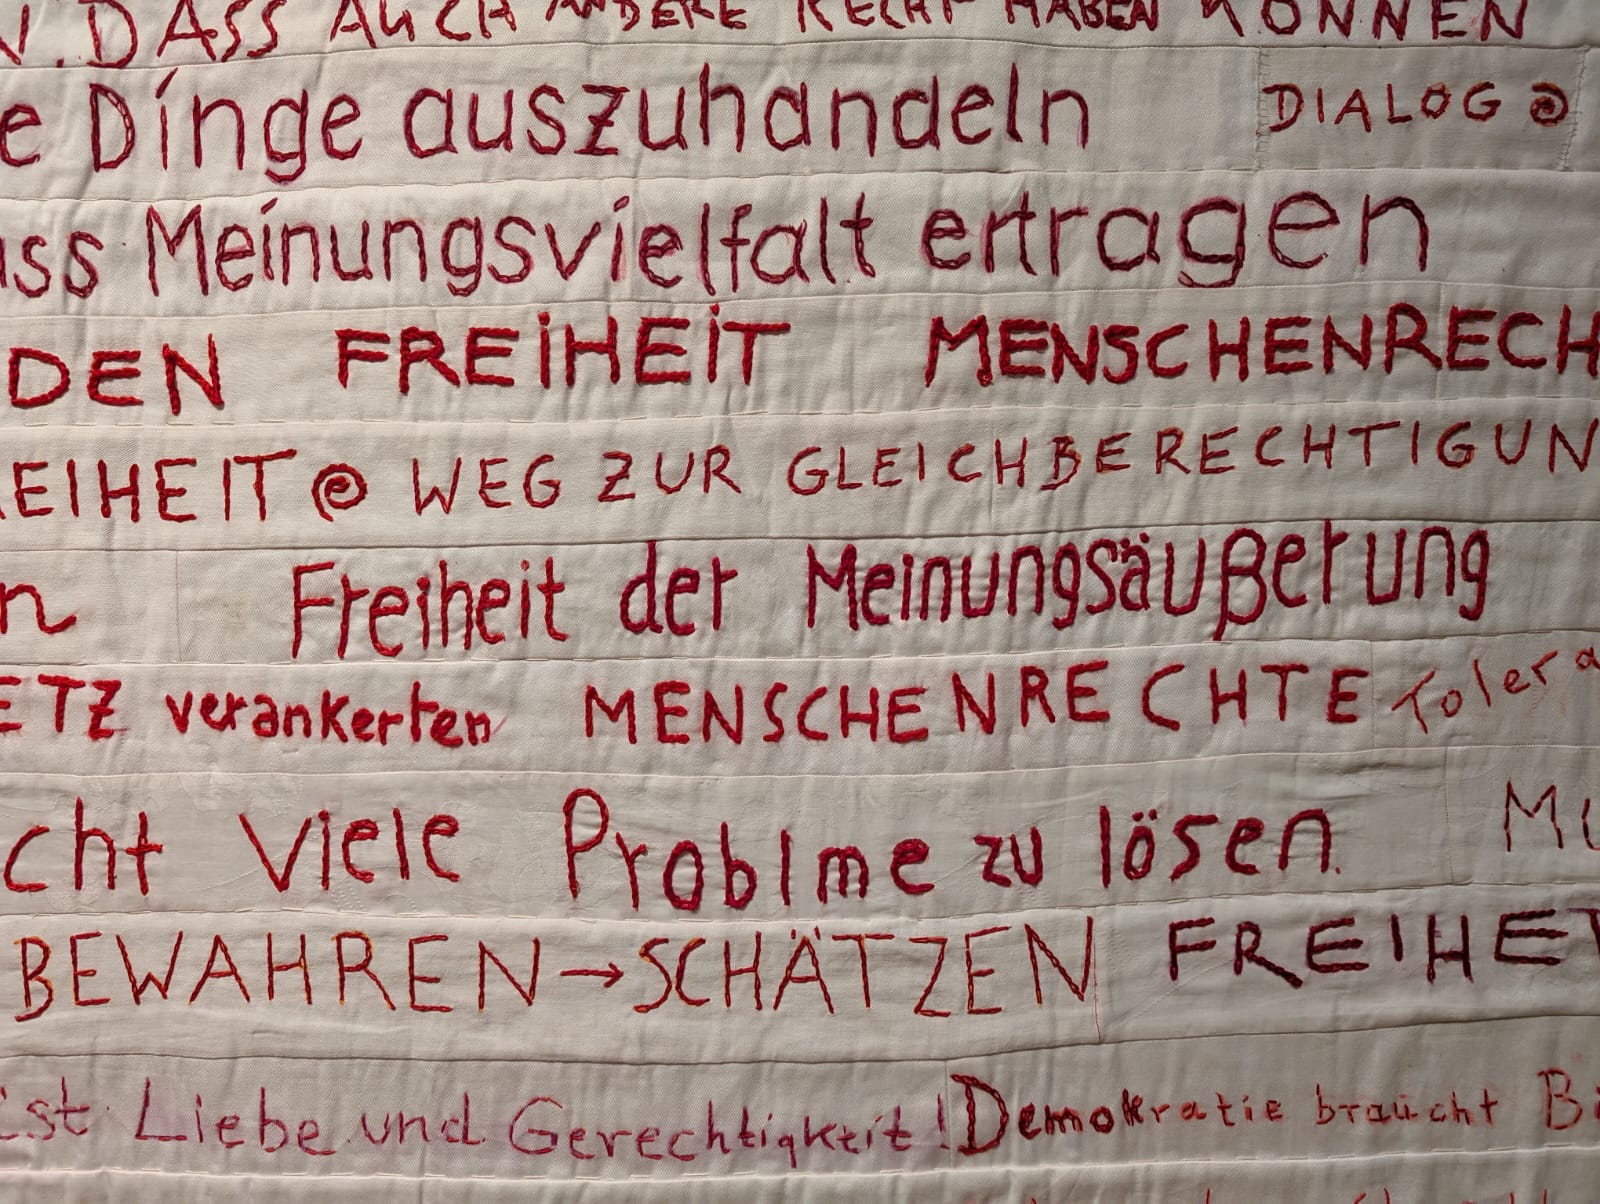 DASS AUCH ANDERE RECHT HABEN KÖNNEN
e Dinge auszuhandeln DIALOG
ass Meinungsvielfalt ertragen
DEN FREIHEIT MENSCHENRECH
EIHEIT WEG ZUR GLEICHBERECHTIGUN
n Freiheit der Meinungsäußerung
ETZ verankerten MENSCHENRECHTE Tolera
cht viele Problme zu lösen. Mu
BEWAHREN → SCHÄTZEN FREIHEI
ist Liebe und Gerechtigkeit! Demokratie braucht B